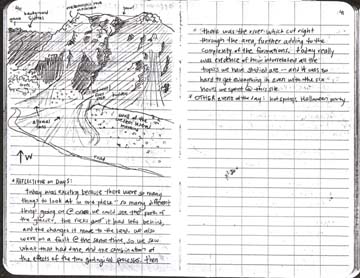 the background
metamorphic rock
fault
river
road
W
* REFLECTIONS ON DAY 5:
Today was exciting because there were so many
things to look at in one place - so many different
things going on @ once. We could see the path of
the glacier, the rocks that it had left behind,
and the changes it made to the land. We also
were on a fault @ the same time, so we saw
what that had done, and the combination of
the effects of the two geological processes. Then
there was the river which cut right
through the area, further adding to the
complexity of the formations. Today really
was evidence of how interrelated all the
topics we have studied are - and it was so
hard to get everything in even with the six
hours we spent @ this site.
* OTHER event of the day: hot springs, Halloween party